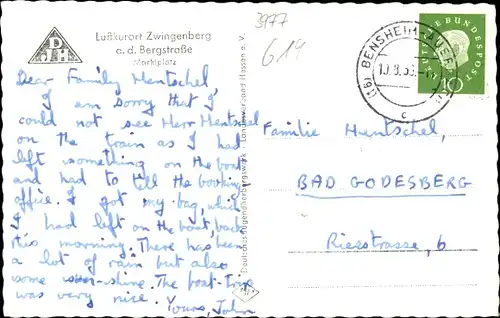 DJH
Luftkurort Zwingenberg
a. d. Bergstraße
Marktplatz
Dear Family Mentschel,
I am sorry that I
could not see Herr Mentschel
on the train as I had
left something on the boat
and had to tell the booking
office. I got my bag, which
I had left on the boat, back
this morning. There has been
a lot of rain but also
some sun-shine. The boat-trip
was very nice. Yours, John
Deutsches Jugendherbergswerk · Landesverband Hessen e. V.
3977
619
BENSHEIM-AUERBACH
(16)
c
DEUTSCHE BUNDESPOST
10
Familie Mentschel,
BAD GODESBERG
Riesstrasse, 6